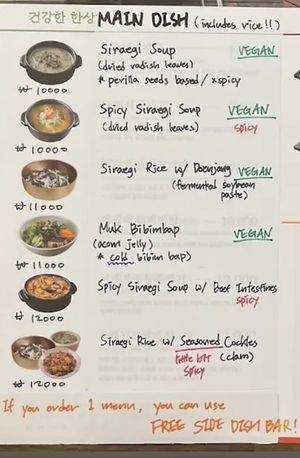 건강한 한상 MAIN DISH (includes rice!!)
Siraegi Soup VEGAN
(dried radish leaves)
* perilla seeds based / xspicy
₩ 10000
Spicy Siraegi Soup VEGAN
(dried radish leaves) spicy
₩ 10000
Siraegi Rice w/ Doenjang VEGAN
(fermented soybean
paste)
₩ 11000
Muk Bibimbap VEGAN
(acorn jelly)
* cold bibim bap)
₩ 11000
Spicy Siraegi Soup w/ Beef Intestines
spicy
₩ 12000
Siraegi Rice w/ Seasoned Cockles
little bit (clam)
spicy
₩ 12000
If you order 1 menu, you can use
FREE SIDE DISH BAR!